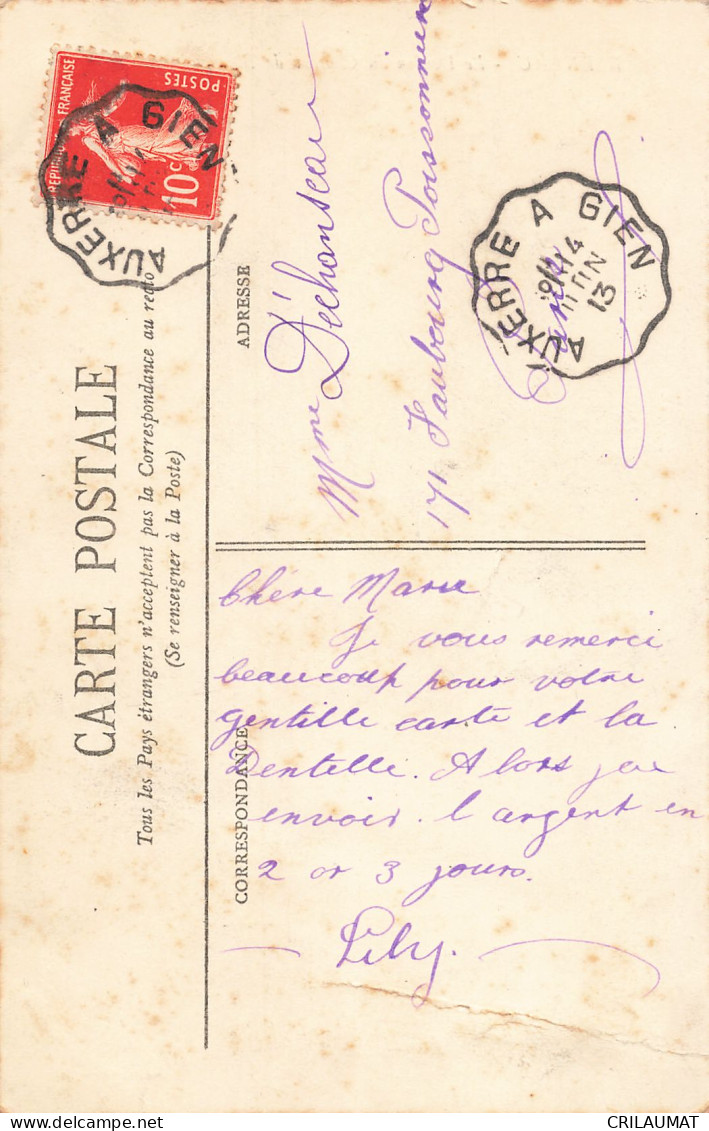 CARTE POSTALE
Tous les Pays étrangers n'acceptent pas la Correspondance au recto
(Se renseigner à la Poste)
REPUBLIQUE FRANÇAISE
POSTES
10c
AUXERRE A GIEN
ADRESSE
Mme Déchanseau
171 Faubourg Poissonnière
Paris
AUXERRE A GIEN
14
JUIN
13
CORRESPONDANCE
Chère Marie
Je vous remerci
beaucoup pour votre
gentille carte et la
Dentelle. Alors je
envoir l'argent en
2 or 3 jours.
Lily.
CRILAUMAT